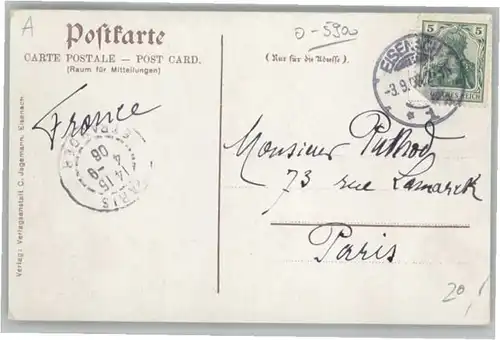 A
Postkarte
CARTE POSTALE — POST CARD.
(Raum für Mitteilungen)
0-5900
(Nur für die Adresse.)
5 5
EISENACH
-3.9.06
France
PARIS
14 15
4 - 9
06
ETRANGER
Monsieur Puthod
73 rue Lamarck
Paris
20,/
Verlag: Verlagsanstalt C. Jagemann, Eisenach